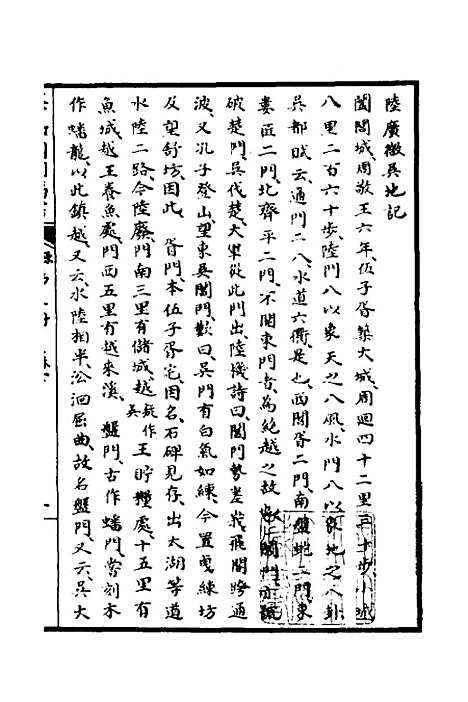 陸廣微吳地記
闔閭城周敬王六年伍子胥築大城周迴四十二里三十步小城
八里二百六十步陸門八以象天之八風水門八以象地之八卦
吳都賦云通門二八水道六衢是也西閶胥二門南盤蛇二門東
婁匠二門北齊平二門不開東門者為絶越之故 閶門亦號
破楚門吳伐楚大軍從此門出陸機詩曰閶門勢差峩飛閣跨通
波又孔子登山望東吳閶門歎曰吳門有白氣如練今置曳練坊
及望舒坊因此 胥門本伍子胥宅因名石碑見存出太湖等道
水陸二路今陸廢門南三里有儲城越疑作吳王貯糧處十五里有
魚城越王養魚處門西五里有越來溪 盤門古作蟠門嘗刻木
作蟠龍以此鎮越又云水陸相半沿洄屈曲故名盤門又云吳大